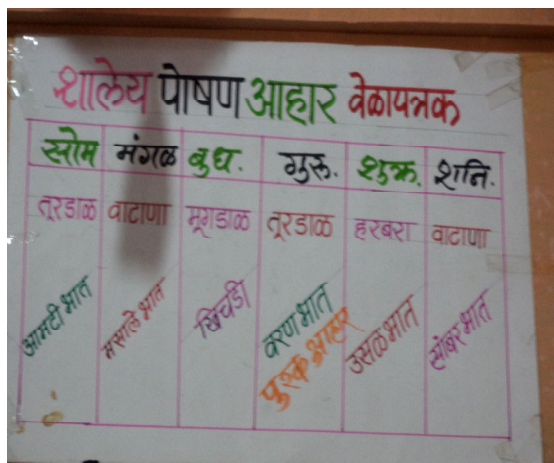 शालेय पोषण आहार वेळापत्रक
सोम मंगळ बुध. गुरू. शुक्र. शनि.
तूरडाळ वाटाणा मूगडाळ तूरडाळ हरबरा वाटाणा
आमटी भात मसाले भात खिचडी वरण भात उसळ भात सांबर भात
पुरक आहार